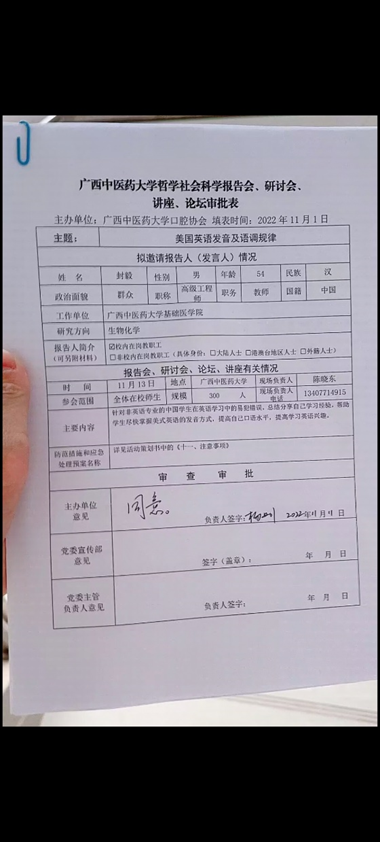 广西中医药大学哲学社会科学报告会、研讨会、
讲座、论坛审批表
主办单位：广西中医药大学口腔协会 填表时间：2022年11月1日
主题： 美国英语发音及语调规律
拟邀请报告人（发言人）情况
姓名 封毅 性别 男 年龄 54 民族 汉
政治面貌 群众 职称 高级工程师 职务 教师 国籍 中国
工作单位 广西中医药大学基础医学院
研究方向 生物化学
报告人简介 ☑校内在岗教职工
（可另附材料） □非校内在岗教职工（具体身份：□大陆人士 □港澳台地区人士 □外籍人士）
报告会、研讨会、论坛、讲座有关情况
时间 11月13日 地点 广西中医药大学 现场负责人 陈晓东
参会范围 全体在校师生 规模 300人 现场负责人电话 13407714915
主要内容 针对非英语专业的中国学生在英语学习中的易犯错误，总结分享自己学习经验，帮助
学生尽快掌握美式英语的发音方式，提高自己口语水平，提高学习英语兴趣。
防范措施和应急 详见活动策划书中的《十一、注意事项》
处理预案名称
审 查 审 批
主办单位
意见
同意。
负责人签字： 2022年11月1日
党委宣传部
意见
签字（盖章）： 年 月 日
党委主管
负责人意见
负责人签字： 年 月 日